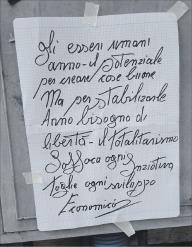 Gli esseri umani
anno il potenziale
per creare cose buone
Ma per stabilizzarle
Anno bisogno di
libertà - il totalitarismo
Soffoca ogni
Inziotiva
toglie ogni sviluppo
Economico